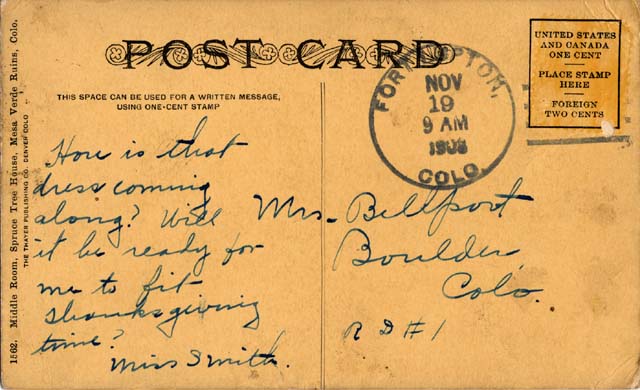 POST CARD
THIS SPACE CAN BE USED FOR A WRITTEN MESSAGE,
USING ONE-CENT STAMP
UNITED STATES
AND CANADA
ONE CENT
PLACE STAMP
HERE
FOREIGN
TWO CENTS
FORT LUPTON,
NOV
19
9 AM
COLO.
1862. Middle Room, Spruce Tree House, Mesa Verde Ruins, Colo.
THE THAYER PUBLISHING CO. DENVER COLO
How is that
dress coming
along? Will
it be ready for
me to fit
thanksgiving
time?
Miss Smith.
Mrs. Bellport
Boulder
Colo.
R D #1